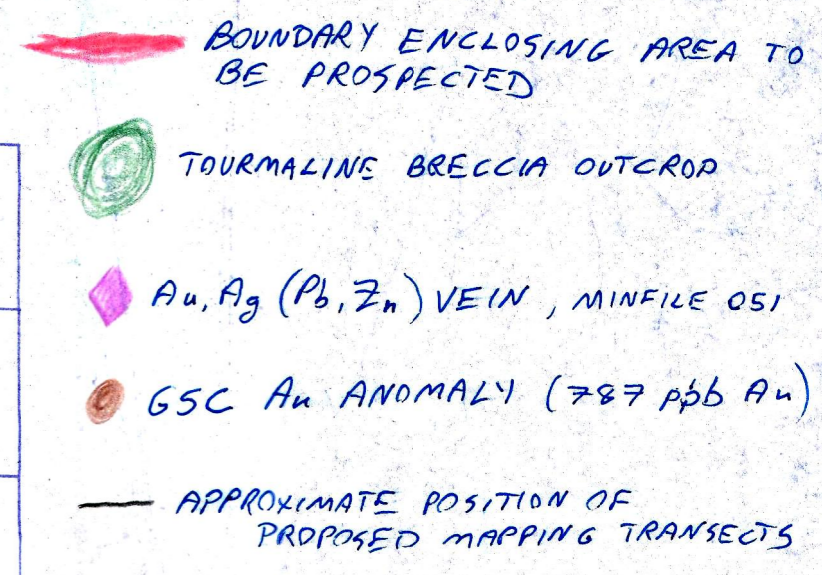 BOUNDARY ENCLOSING AREA TO
BE PROSPECTED
TOURMALINE BRECCIA OUTCROP
Au, Ag (Pb, Zn) VEIN, MINFILE 051
GSC Au ANOMALY (787 ppb Au)
APPROXIMATE POSITION OF
PROPOSED MAPPING TRANSECTS